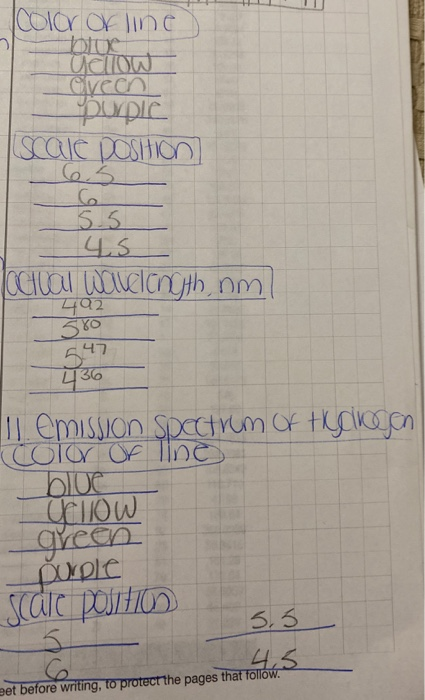 color of line
blue
yellow
green
purple
scale position
6.5
6
5.5
4.5
actual wavelength, nm
492
580
547
436
11. Emission spectrum of Hydrogen
color of line
blue
yellow
green
purple
scale position
5 5.5
6 4.5
eet before writing, to protect the pages that follow.